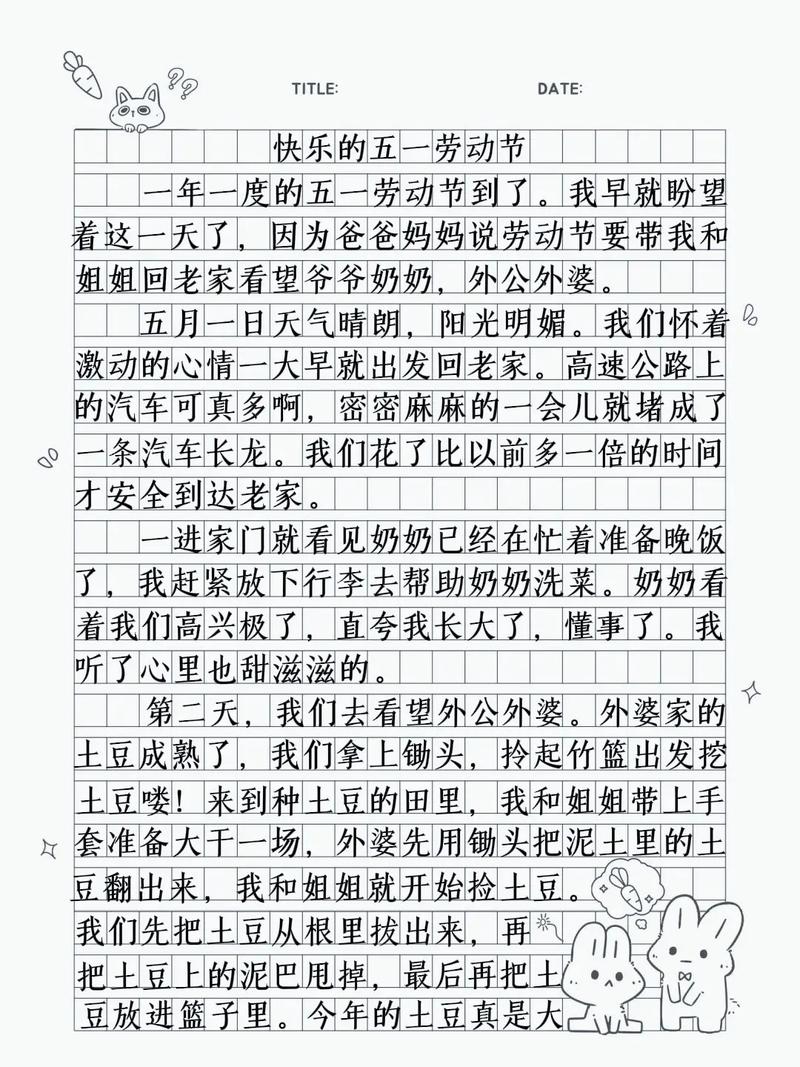 TITLE: DATE:
快乐的五一劳动节
一年一度的五一劳动节到了。我早就盼望
着这一天了，因为爸爸妈妈说劳动节要带我和
姐姐回老家看望爷爷奶奶，外公外婆。
五月一日天气晴朗，阳光明媚。我们怀着
激动的心情一大早就出发回老家。高速公路上
的汽车可真多啊，密密麻麻的一会儿就堵成了
一条汽车长龙。我们花了比以前多一倍的时间
才安全到达老家。
一进家门就看见奶奶已经在忙着准备晚饭
了，我赶紧放下行李去帮助奶奶洗菜。奶奶看
着我们高兴极了，直夸我长大了，懂事了。我
听了心里也甜滋滋的。
第二天，我们去看望外公外婆。外婆家的
土豆成熟了，我们拿上锄头，拎起竹篮出发挖
土豆喽！来到种土豆的田里，我和姐姐带上手
套准备大干一场，外婆先用锄头把泥土里的土
豆翻出来，我和姐姐就开始捡土豆。
我们先把土豆从根里拔出来，再
把土豆上的泥巴甩掉，最后再把土
豆放进篮子里。今年的土豆真是大